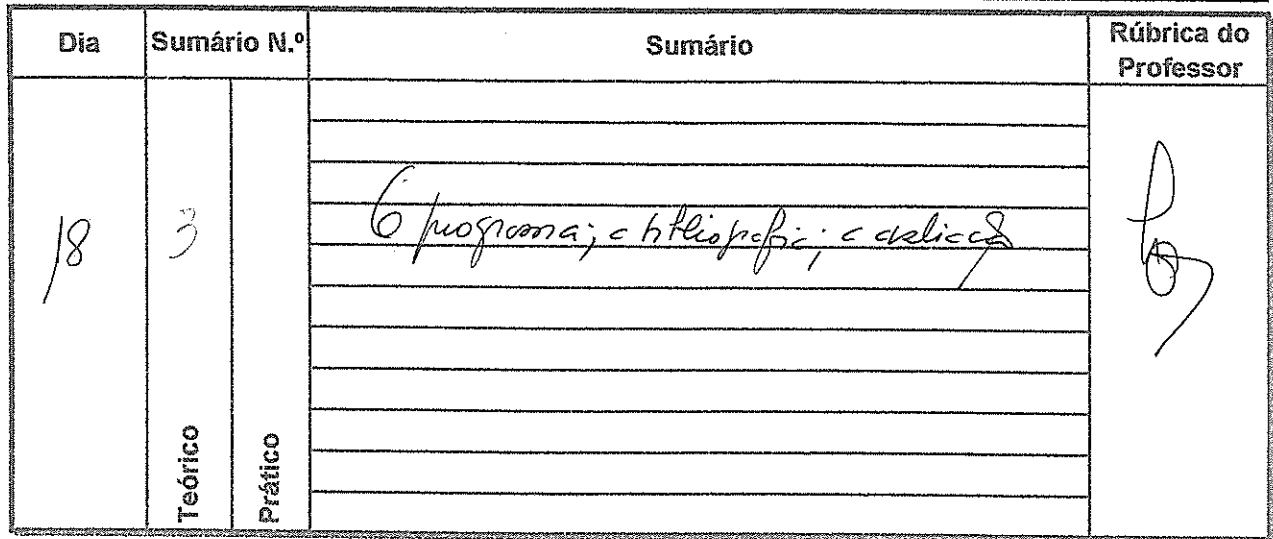 Dia Sumário N.º Sumário Rúbrica do
Professor
18 3 O programa; a bibliografia; a avaliação
Teórico Prático